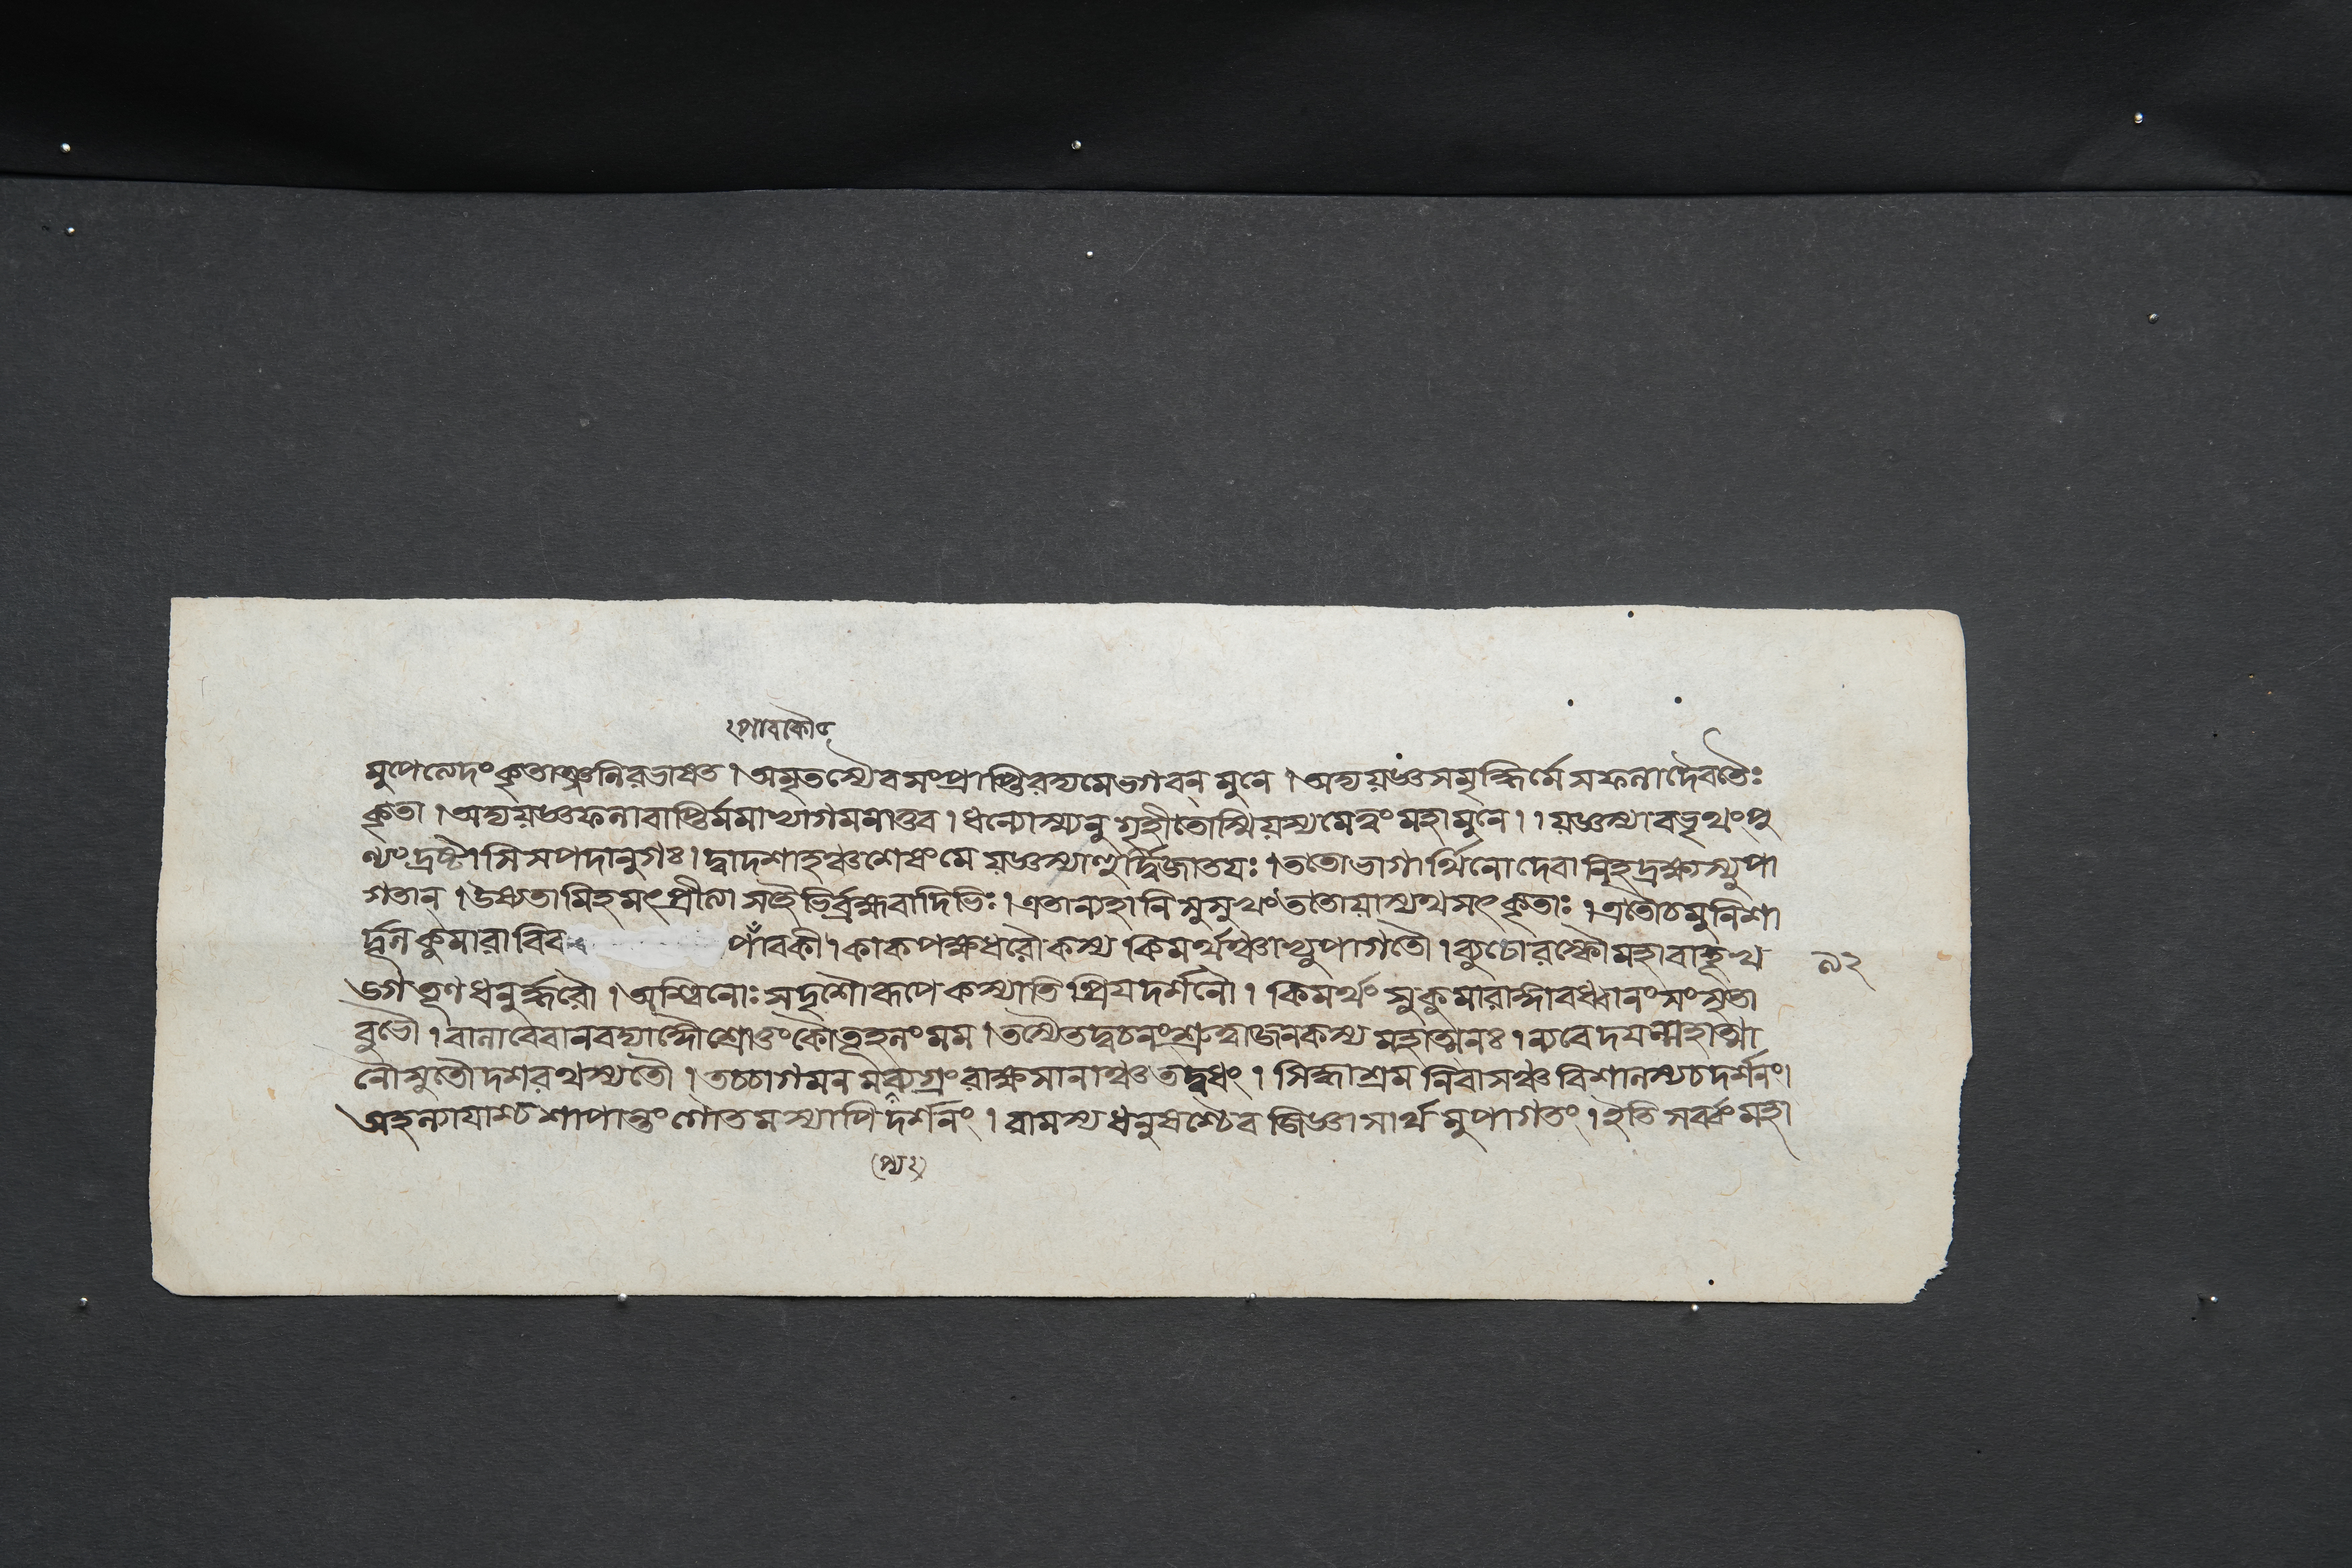 পাবকৌ
মুপেত্যেদং কৃতাঞ্জলিরভাষত । অমৃতস্যৈব সংপ্রাপ্তিরদ্য মে ভগবন্ মুনে । অদ্য যজ্ঞসমৃদ্ধির্মে সফলা দৈবতৈঃ
কৃতা । অদ্য যজ্ঞফলাবাপ্তির্ম্মমাদ্যাগমনাত্তব । ধন্যোস্ম্যনুগৃহীতোস্মি যস্য মে ত্বং মহামুনে । । যজ্ঞস্যাবভৃথং পু
ণ্যং দ্রষ্টাসি সপদানুগঃ । দ্বাদশাহঞ্চ শেষং মে যজ্ঞস্যাহুর্দ্বিজাতযঃ । ততো ভাগার্থিনো দেবানিহ দ্রক্ষ্যস্যুপা
গতান্ । উষ্যতামিহ মৎপ্রীত্যা সহৈভির্ব্রহ্মবাদিভিঃ । এতান্যহানি সুসুখং ততো যাস্যথ সৎকৃতাঃ । এতৌ চ মুনিশা
র্দ্দূল কুমারাবিব পাবকী । কাকপক্ষধরৌ কস্য কিমর্থঞ্চাভ্যুপাগতৌ । ব্যূঢোরস্কৌ মহাবাহূ খ ৯২
ড়্গতূণধনুর্দ্ধরৌ । অশ্বিনোঃ সদৃশৌ রূপে কস্যাতিপ্রিযদর্শনৌ । কিমর্থং সুকুমারাঙ্গাবধ্বানং সংসৃতা
বুভৌ । বালাবেবানবদ্যাঙ্গৌ শ্রোতুং কৌতূহলং মম । তস্যৈতদ্বচনং শ্রুত্বা জনকস্য মহাত্মনঃ । ন্যবেদযন্মহাত্মা
নৌ সুতৌ দশরথস্য তৌ । তচ্চাগমনমব্যগ্রং রাক্ষসানাঞ্চ তদ্বধং । সিদ্ধাশ্রমনিবাসঞ্চ বিশালস্য চ দর্শনং ।
অহল্যাযাশ্চ শাপান্তং গোতমস্যাপি দর্শনং । রামস্য ধনুষশ্চৈব জিজ্ঞাসার্থমুপাগতং । ইতি সর্ব্বং মহা